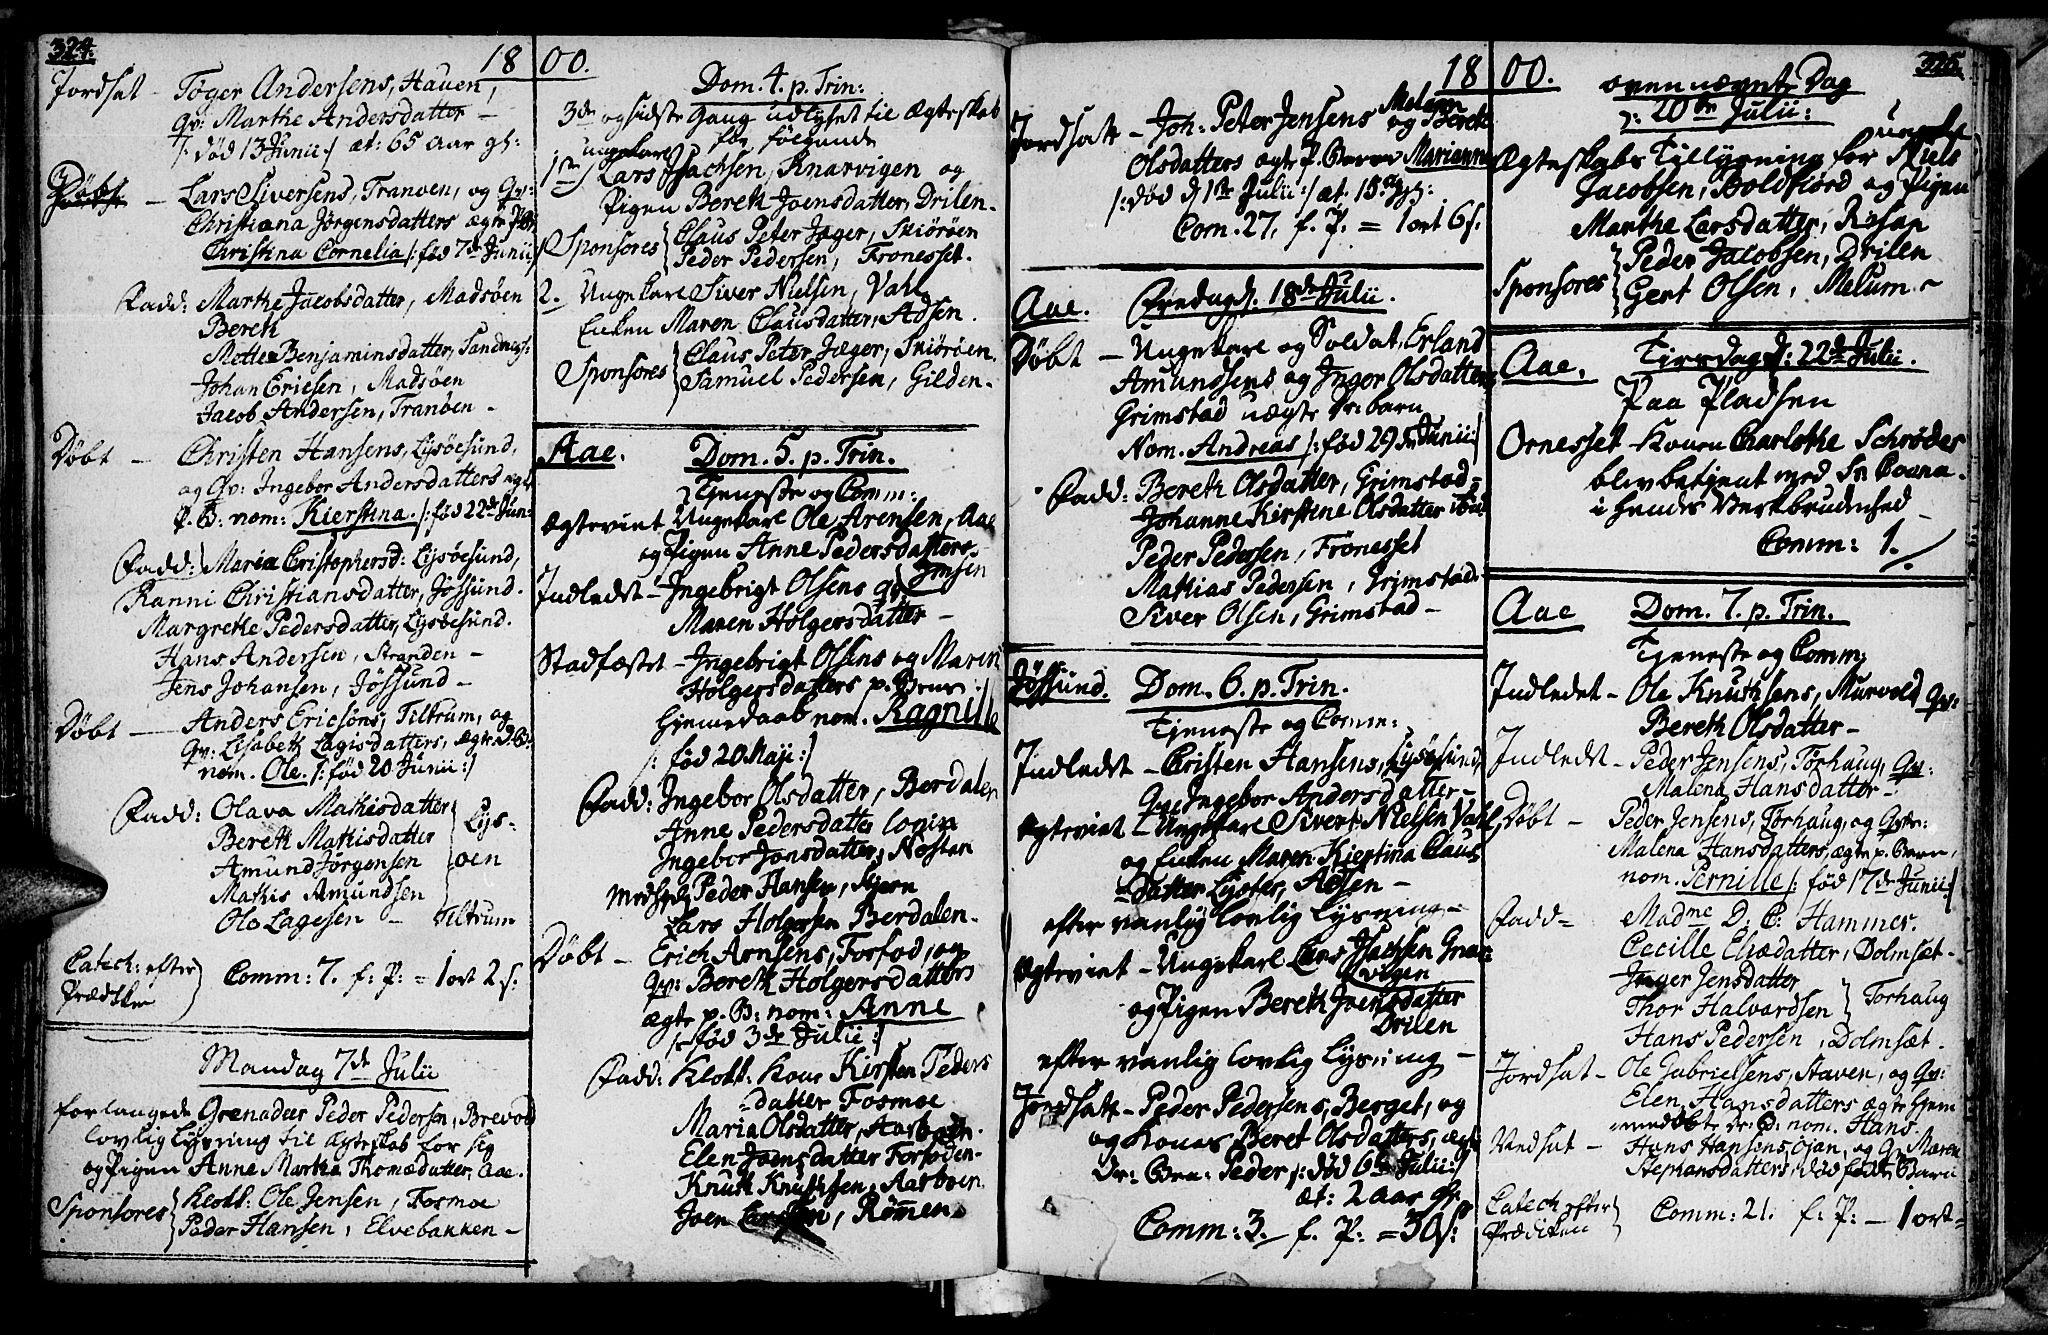 324.
1800.
Jordsat - Töger Andersens, Hauen,
Qv: Marthe Andersdatter -
/: död 13 Junii :/ æt: 65 aar gl:
Döbt - Lars Siversens, Tranöen, og Qv:
Christiana Jörgensdatters ægte P.B.
Christina Cornelia /: föd 7de Junii :/
Fadd: Marthe Jacobsdatter, Madsöen
Bereth
Mette Benjaminsdatter, Sandnegs:
Johan Ericsen, Madsöen
Jacob Andersen, Tranöen -
Döbt - Christen Hansens, Lysöesund,
og Qv: Ingebor Andersdatters ægte
P. B: nom: Kierstina. /: föd 22de Jun:
Fadd: Maria Christophersd: Lysöesund,
Ranni Christiansdatter, Jössund.
Margrethe Pedersdatter, Lysöesund.
Hans Andersen, Stranden -
Jens Johansen, Jössund -
Döbt - Anders Ericsöns, Tiltrum, og
Qv: Lisabeth Lagisdatters, ægte D.B:
nom. Ole. /: föd 20 Junii :/
Fadd: Olava Mathisdatter
Bereth Mathisdatter
Amund Jörgensen
Mathis Amundsen
Lys:
öen
Ole Lagesen - Tiltrum
Catech: efter
Prædiken
Comm: 7. f: P: = 1 ort 2 s:
Mandag 7de Julii
forlangede Grenadeer Peder Pedersen, Brevold
lovlig lysning til ægteskab for sig
og Pigen Anne Marthe Thomædatter, Aae.
Sponsores Klokk: Ole Jensen, Fosmoe
Peder Hansen, Elvebakken -
Dom. 4. p. Trin:
3de og sidste Gang udlyset til Ægteskab
for fölgende
1ste) ungekarl Lars Isachsen, Knarvigen og
Pigen Bereth Joensdatter, Drilen.
Sponsores Claus Peter Jæger, Skiöröen
Peder Pedersen, Fronesset.
2. Ungekarl Siver Nielsen, Vall,
Enken Maren Clausdatter, Adsen.
Sponsores Claus Peter Jæger, Skiöröen.
Samuel Pedersen, Gilden.
Aae. Dom. 5. p. Trin.
Tjeneste og Comm:
Ægteviet Ungekarl Ole Arensen, Aae
og Pigen Anne Pedersdatter,
Indledt - Ingebrigt Olsens Qv: Imsen
Maren Holgersdatter -
Stadfæstet - Ingebrigt Olsens og Maren
Holgersdatters p. Barn
hjemedaab nom. Ragnille
/: föd 20 Maji :/
Fadd: Ingebor Olsdatter, Berdalen
Anne Pedersdatter
Ingebor Jonsdatter, Næsten
Peder Hansen, Stjern
Lars Holgersen Berdalen.
Döbt - Erich Arnsens, Forfod, og
Qv: Bereth Holgersdatters
ægte p. B: nom: Anne
/: föd 3de Julii :/
Fadd: Klokk: Kone Kirsten Peders
datter Fosmoe
Maria Olsdatter,
Elen Joensdatter Forfoden.
Knuth Knuthsen, Aasboen
Joen, Römen.
1800. 325.
Jordsatt - Joh: Peter Jensens Melum og Bereth
Olsdatters ægte P. Barn Marianne
/: död d. 1ste Julii :/ æt. 15
Com. 27. f. P. = 1 ort 6 s.
Aae. Fredag d. 18de Julii.
Döbt - Ungekarl og Soldat, Erland
Amundsens og Inger Olsdatters
Grimstad uægte Dr: barn
Nom. Andreas /: föd 29 Junii :/
Fadd: Bereth Olsdatter, Grimstad
Johanne Kirstine Olsdatter ibid
Peder Pedersen, Fronesset
Mathias Pedersen, Grimstad.
Siver Olsen, Grimstad -
Jössund. Dom. 6. p. Trin.
Tjeneste og Comm:
Indledt - Cristen Hansens, Lysöesund,
Qv: Ingebor Andersdatter -
Ægteviet - Ungekarl Sivert Nielsen Vall
og Enken Maren Kiertina Claus
datter, Adsen -
efter vanlig lovlig lysning -
Ægteviet - Ungekarl Lars Isachsen Gnar
vigen
og Pigen Bereth Joensdatter
Drilen
efter vanlig lovlig lysning -
Jordsatt - Peder Pedersens, Berget, og
og Konas Beret Olsdatters, ægte
Dr: Barn Peder /: död 6te Julii :/
æt: 2 aar gl:
Comm: 3. f. P: = 30 s:
ovennævnte Dag
20de Julii:
Ægteskabs Tillysning for ungekarl Niels
Jacobsen, Boldfiord og Pigen
Marthe Larsdatter,
Sponsores Peder Jacobsen, Drilen
Gert Olsen, Melum -
Aae. Tirsdag d: 22de Julii.
Paa Pladsen
Ornesset - Konen Charlothe Schröder
blev betjent med Sr. Coena.
i hendes Værkbrudenhed
Comm: 1.
Aae Dom. 7. p. Trin.
Tjeneste og Comm:
Indledet - Ole Knuthsens, Murvold Qv:
Bereth Olsdatter -
Indledt - Peder Jensens, Torhaug, Qv:
Malena Hansdatter -
Döbt - Peder Jensens, Torhaug, og Qv:
Malena Hansdatters, ægte p. Barn,
nom. Pernille /: föd 17de Junii :/
Fadd - Madme D. C: Hammer.
Cecille Eliædatter, Dolmsæt.
Inger Jensdatter
Thor Halvardsen
Torhaug
Hans Pedersen, Dolmsæt.
Jordsat - Ole Gabrielsens, Staven, og Qv:
Elen Hansdatters ægte hjem
medöbte Dr: B: nom. Hans.
Vedsat - Hans Hansens, Ojan, og Qv: Maren
Stephansdatters, död föd Barn
Catech efter
Prædiken
Comm: 21. f: P: - 1 ort =